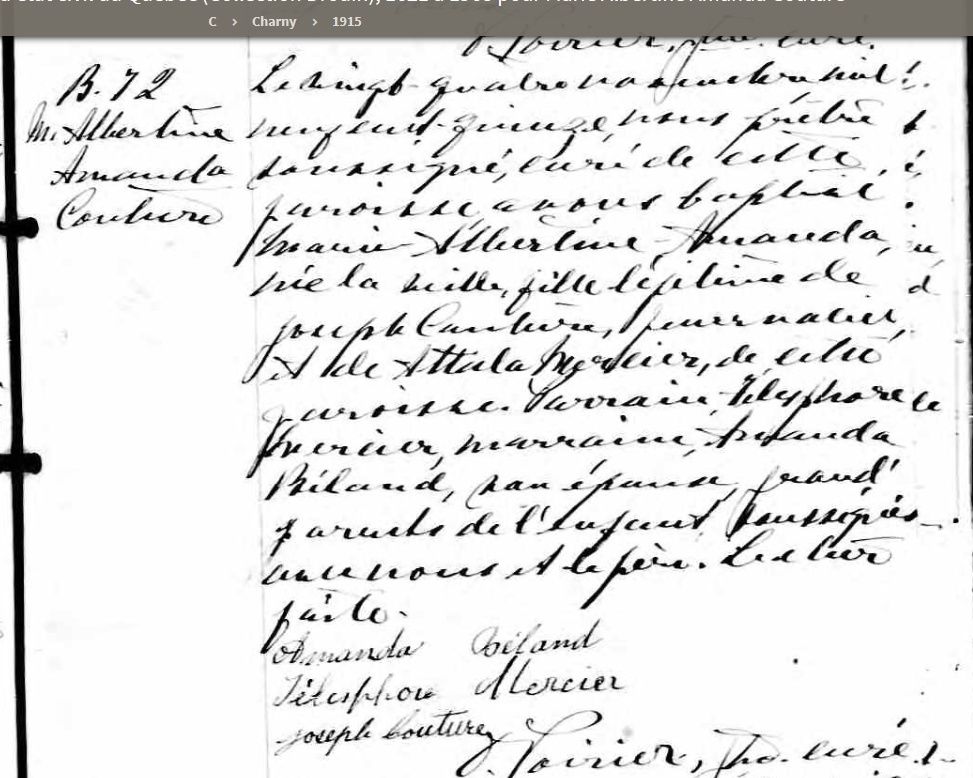 C > Charny > 1915
B. 72
M. Albertine
Amanda
Couture
Le vingt-quatre novembre mil
neuf cent-quinze, nous prêtre
soussigné, curé de cette
paroisse, avons baptisé
Marie-Albertine-Amanda,
née la veille, fille légitime de
Joseph Couture, journalier,
et de Attala Mercier, de cette
paroisse. Parrain, Télesphore
Mercier, marraine, Amanda
Béland, son épouse, grand'
parents de l'enfant, soussignés
avec nous et le père. Lecture
faite.
Amanda Béland
Télesphore Mercier
Joseph Couture
Poirier, Ptre. curé.